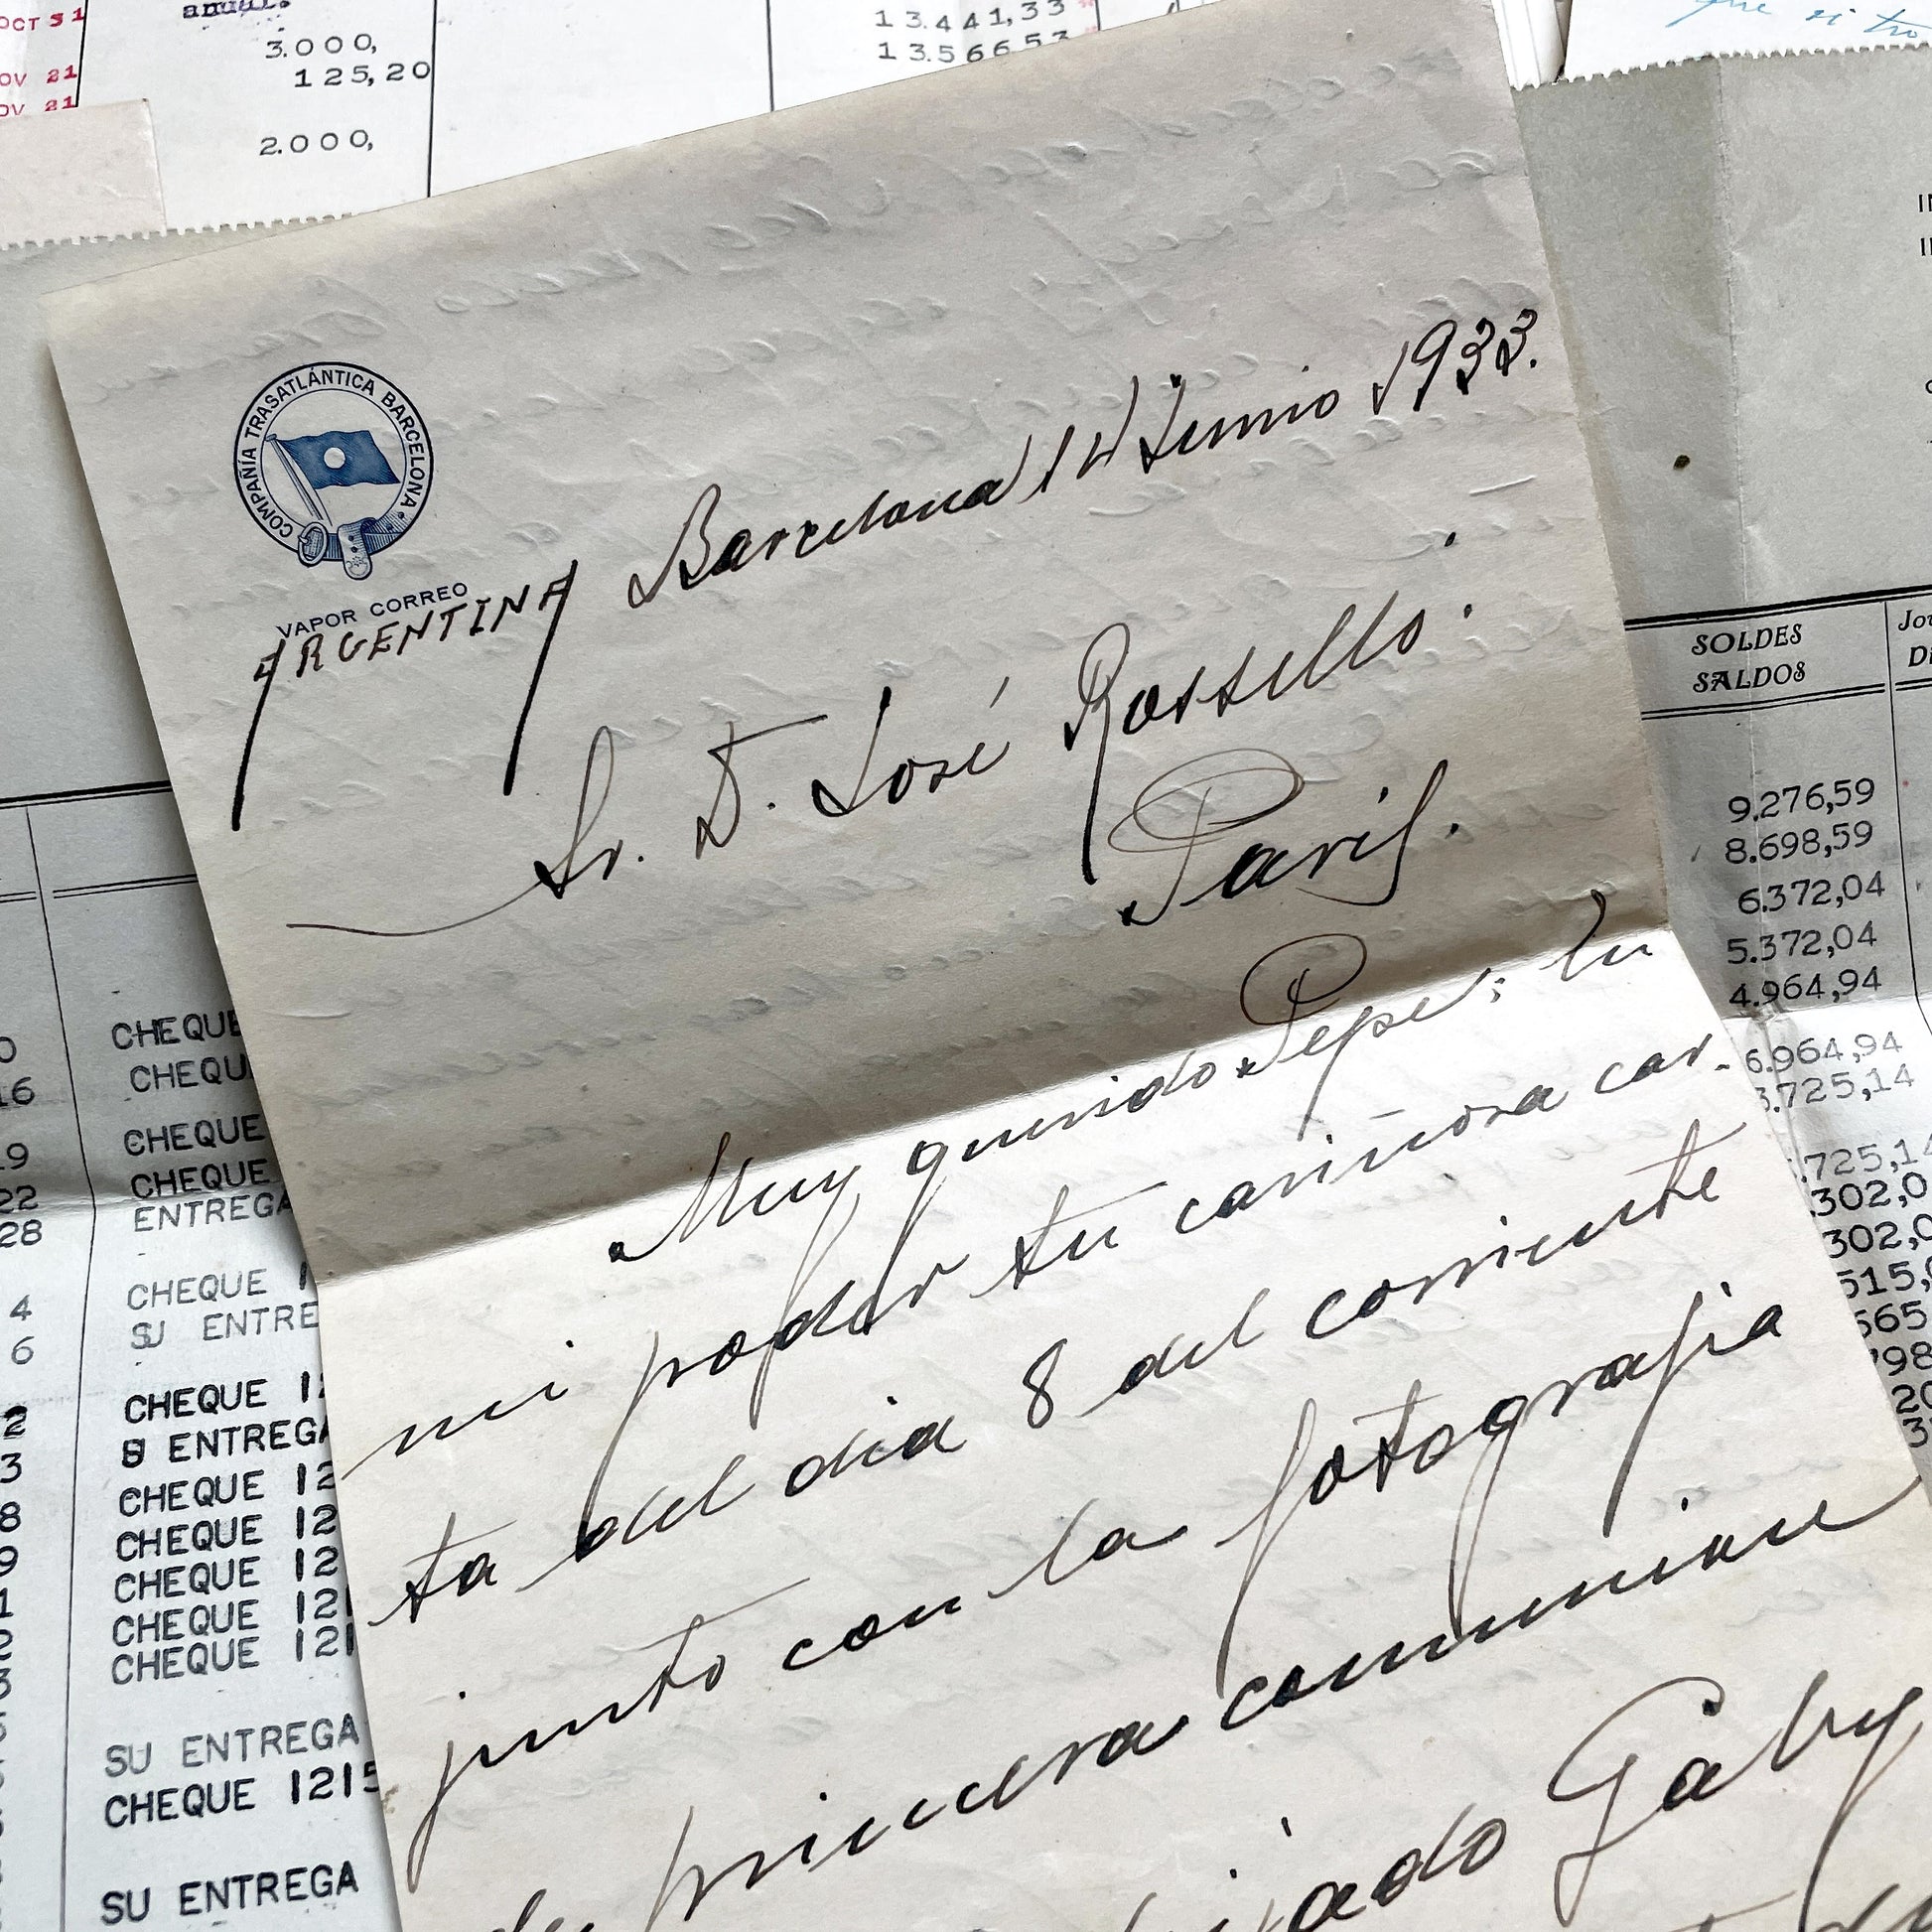 OCT 31
anual.
3.000,
125,20
2.000,
13.441,33
13.566,53
que si
COMPAÑÍA TRASATLÁNTICA BARCELONA
VAPOR CORREO
ARGENTINA
Barcelona 14 Junio 1933.
Sr. D. José Rossello.
Paris.
Muy querido Pepe: En
mi poder tu cariñosa car-
ta del dia 8 del corriente
junto con la fotografia
de primera comunion
Gaby
SOLDES
SALDOS
9.276,59
8.698,59
6.372,04
5.372,04
4.964,94
6.964,94
3.725,14
CHEQUE
CHEQU
CHEQUE
CHEQUE
ENTREGA
CHEQUE 1
SU ENTRE
CHEQUE 12
S ENTREGA
CHEQUE 12
CHEQUE 12
CHEQUE 12
CHEQUE 121
CHEQUE 121
SU ENTREGA
CHEQUE 1215
SU ENTREGA